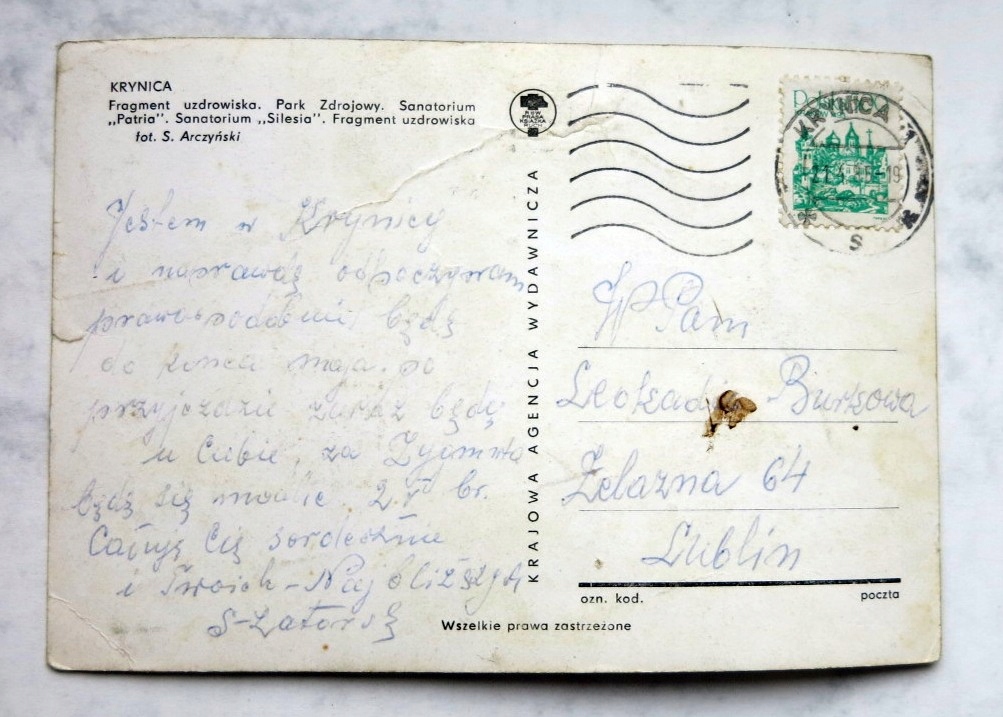 KRYNICA
Fragment uzdrowiska. Park Zdrojowy. Sanatorium
„Patria". Sanatorium „Silesia". Fragment uzdrowiska
fot. S. Arczyński
Jestem w Krynicy
i naprawdę odpoczywam
będę
do końca maja. po
przyjeździe zaraz będę
u Ciebie, za Zygmunta
będę się modlić 2.V br.
Całuję Cię serdecznie
i Twoich-Najbliższych
RSW
PRASA
KSIĄŻKA
RUCH
KRAJOWA AGENCJA WYDAWNICZA
KRYNICA 1
WP Pani
Leokadia Burkowa
Żelazna 64
Lublin
ozn. kod.
poczta
Wszelkie prawa zastrzeżone